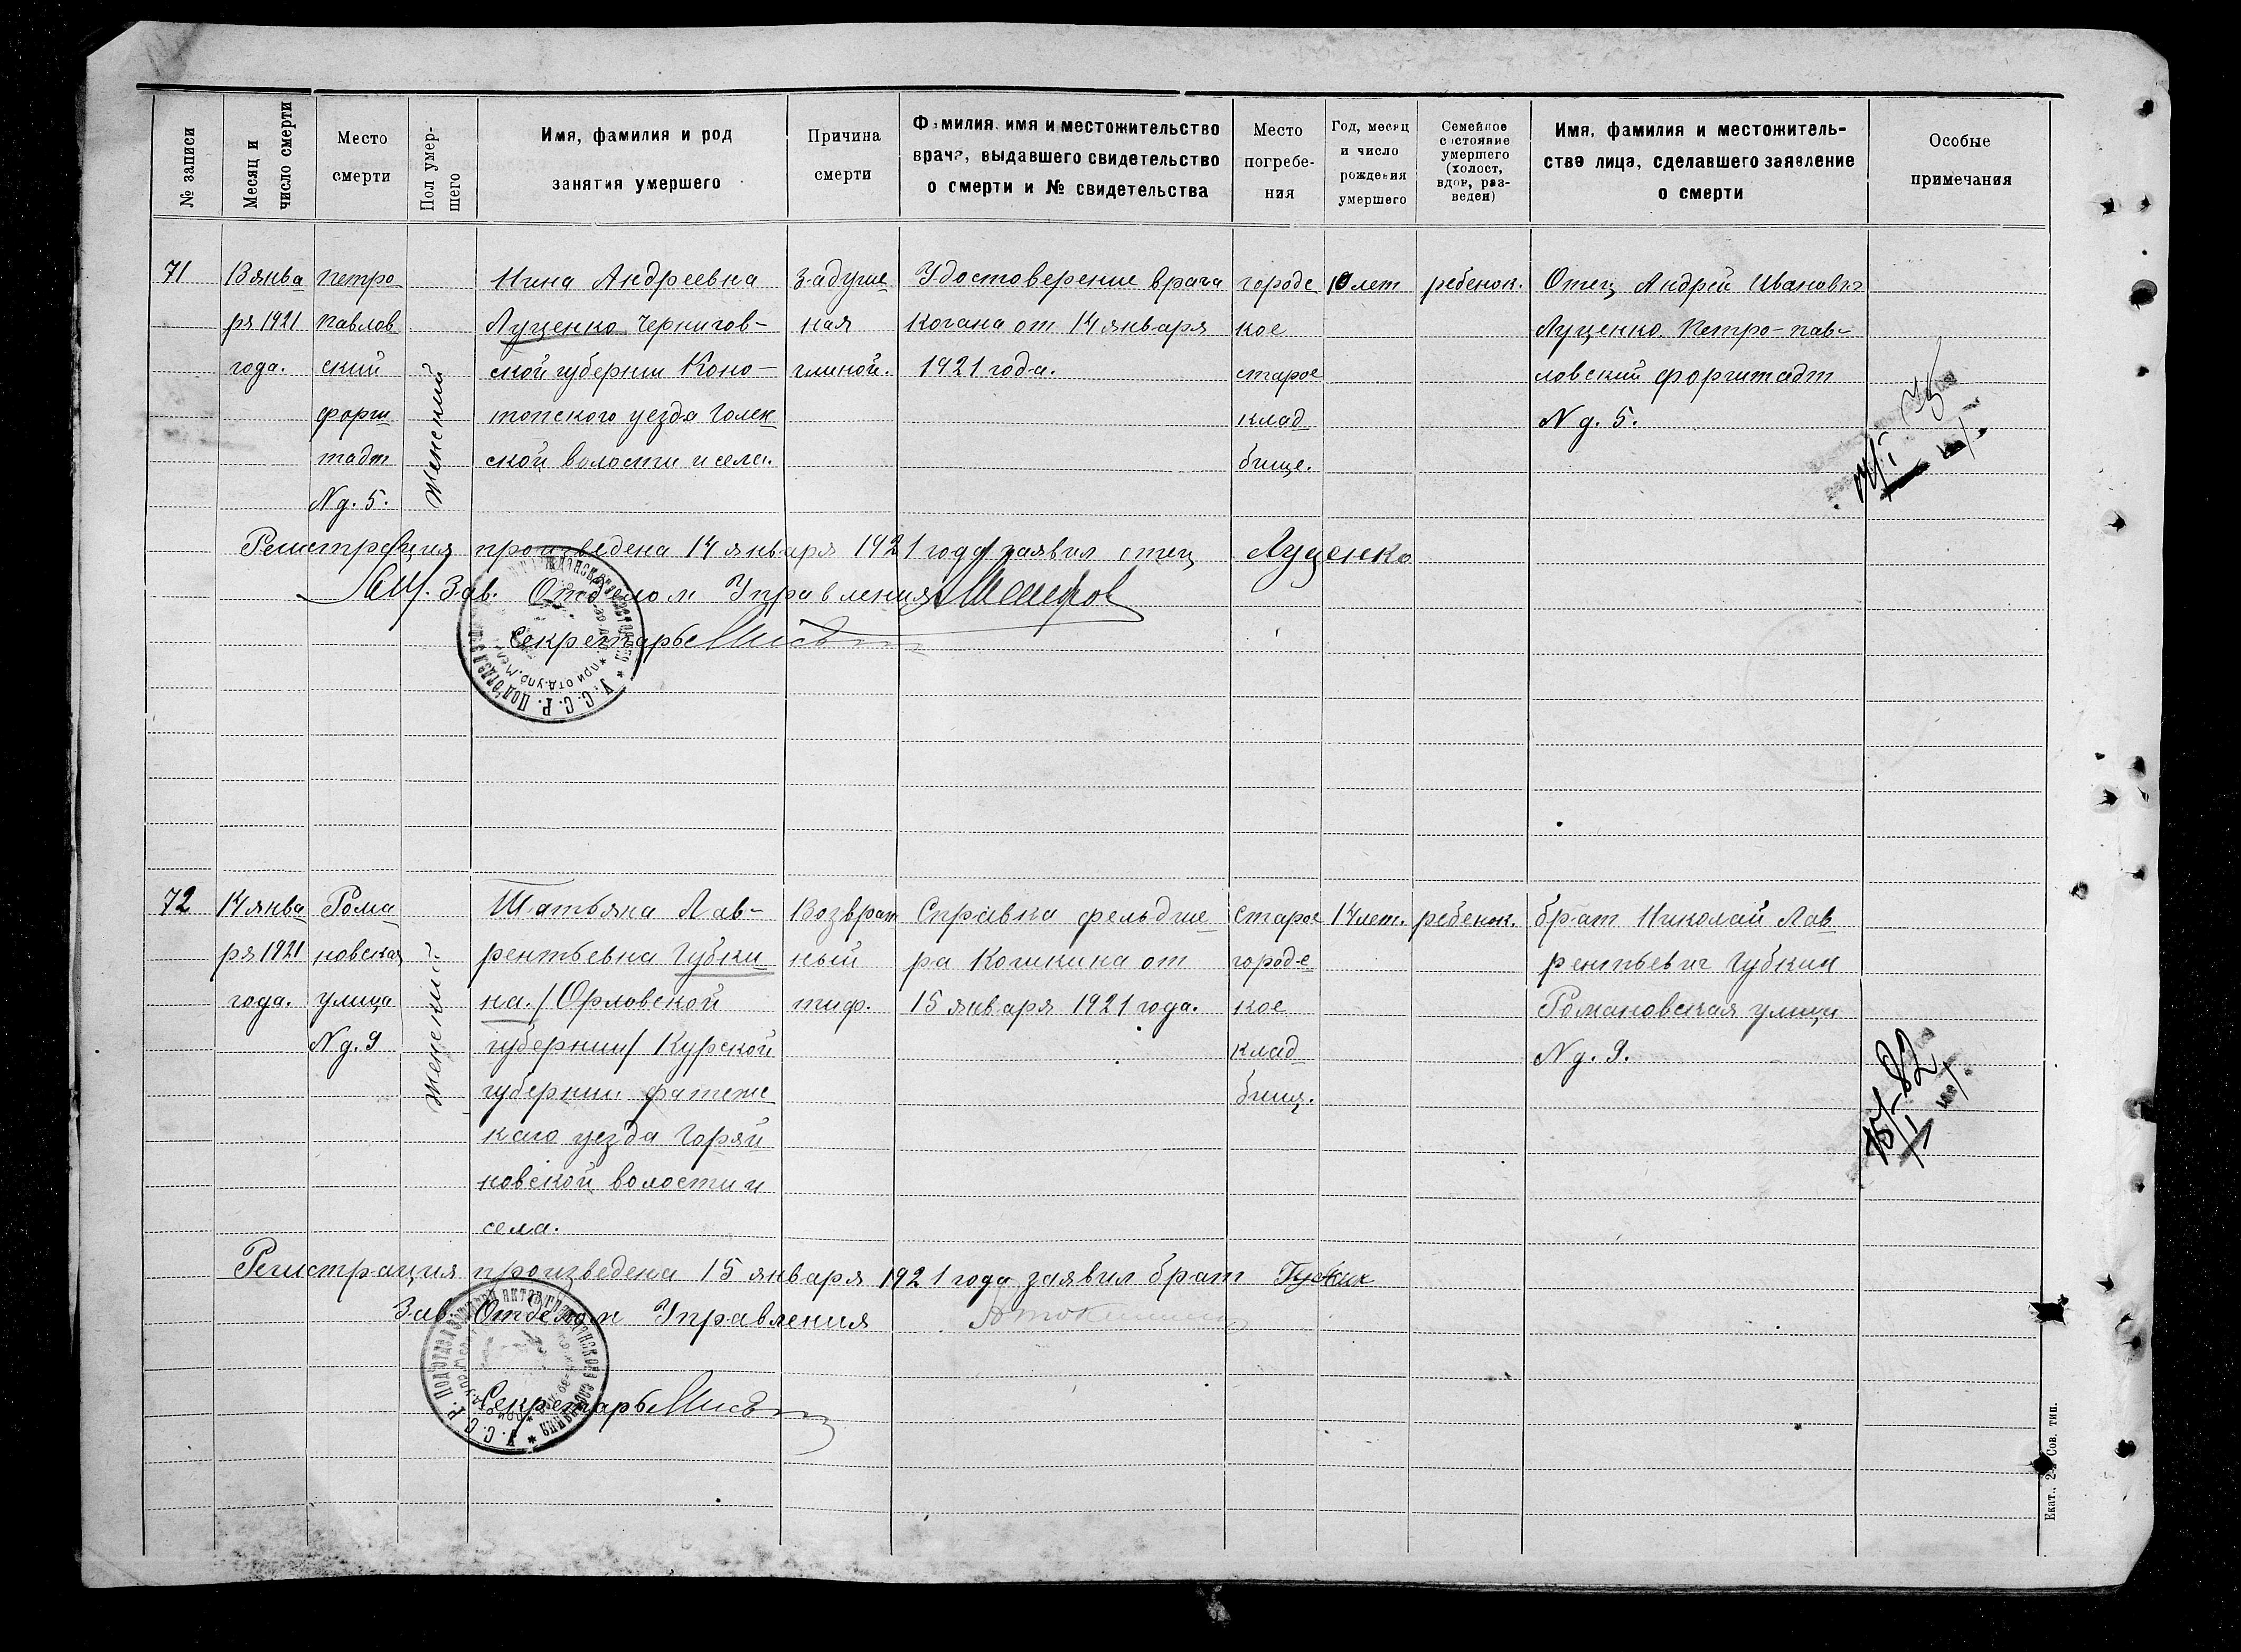 № записи
Месяц и
число смерти
Место
смерти
Пол умер-
шего
Имя, фамилия и род
занятия умершего
Причина
смерти
Фамилия, имя и местожительство
врача, выдавшего свидетельство
о смерти и № свидетельства
Место
погребе-
ния
Год, месяц
и число
рождения
умершего
Семейное
состояние
умершего
(холост,
вдов, раз-
веден)
Имя, фамилия и местожитель-
ство лица, сделавшего заявление
о смерти
Особые
примечания
71
13 янва
ря 1921
года.
Петро
павлов
ский
форш
тадт
№ д. 5.
Женский
Нина Андреевна
Луценко Чернигов-
ской губернии Коно-
топского уезда Голен
ской волости и села.
Задуше
ная
глиной.
Удостоверение врача
Когана от 14 января
1921 года.
городс
кое
старое
клад
бище.
10 лет
ребенок.
Отец Андрей Иванович
Луценко Петро-пав-
ловский форштадт
№ д. 5.
Регистрация произведена 14 января 1921 года заявил отец Луценко
Зав. Отделом Управления
Секретарь
72
14 янва
ря 1921
года.
Рома
новская
улица
№ д. 9
Женский
Татьяна Лав-
рентьевна Губки
на. /Орловской
губернии/ Курской
губернии Фатеже
каго уезда Горяй
новской волости и
села.
Возврат
ный
тиф.
Справка фельдше
ра Кошкина от
15 января 1921 года.
Старое
городс
кое
клад
бищ.
14 лет.
ребенок.
брат Николай Лав
рентьевич Губкин
Романовская улица
№ д. 9.
15/I 82
Регистрация произведена 15 января 1921 года заявил брат Губкин
Зав. Отделом Управления
Секретарь
У.С.С.Р.
Екат., 2-я Сов. тип.